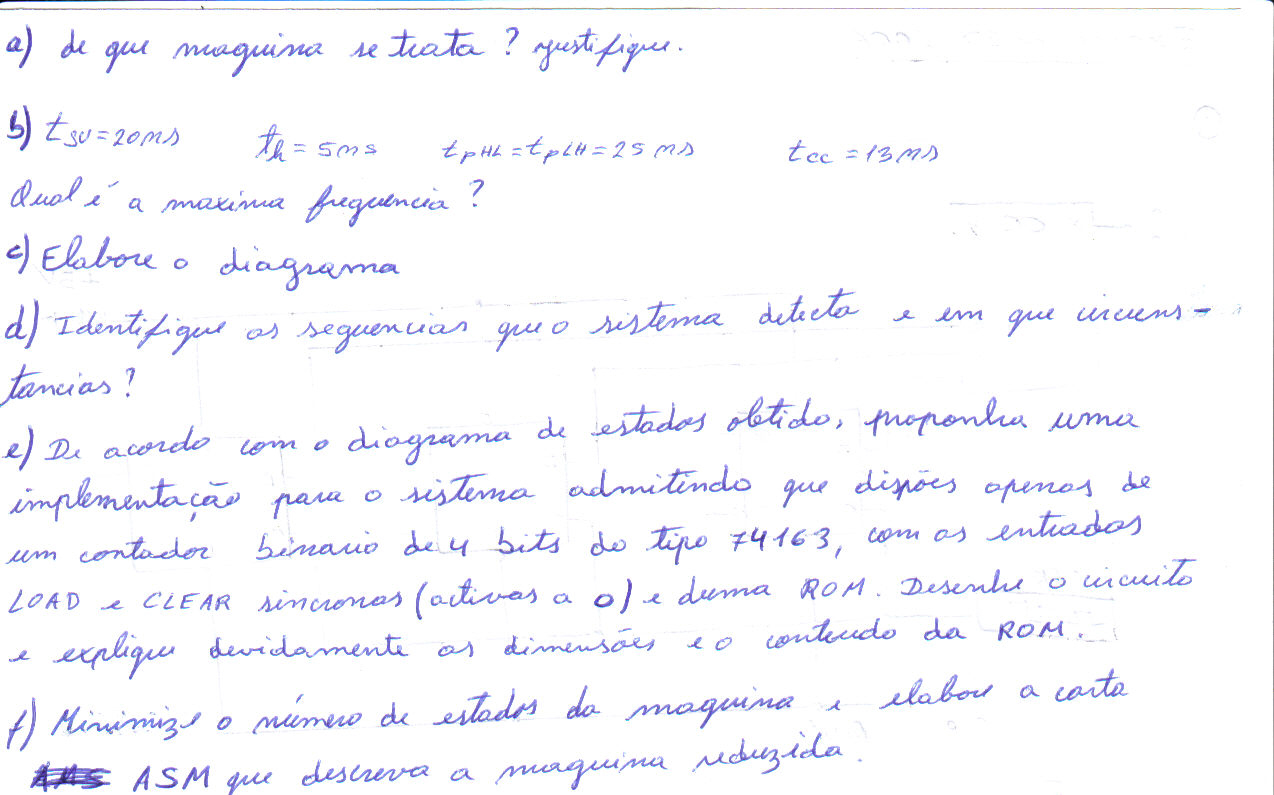 a) de que maquina se trata ? justifique.
b) tsu = 20ns th = 5ns tpHL = tpLH = 25 ns tcc = 13 ns
Qual é a maxima frequencia ?
c) Elabore o diagrama
d) Identifique as sequencias que o sistema detecta e em que circuns-
tancias ?
e) De acordo com o diagrama de estados obtido, proponha uma
implementação para o sistema admitindo que dispões apenas de
um contador binario de 4 bits do tipo 74163, com as entradas
LOAD e CLEAR sincronas (activas a 0) e duma ROM. Desenhe o circuito
e explique devidamente as dimensões e o conteudo da ROM.
f) Minimize o número de estados da maquina e elabore a carta
ASM que descreva a maquina reduzida.